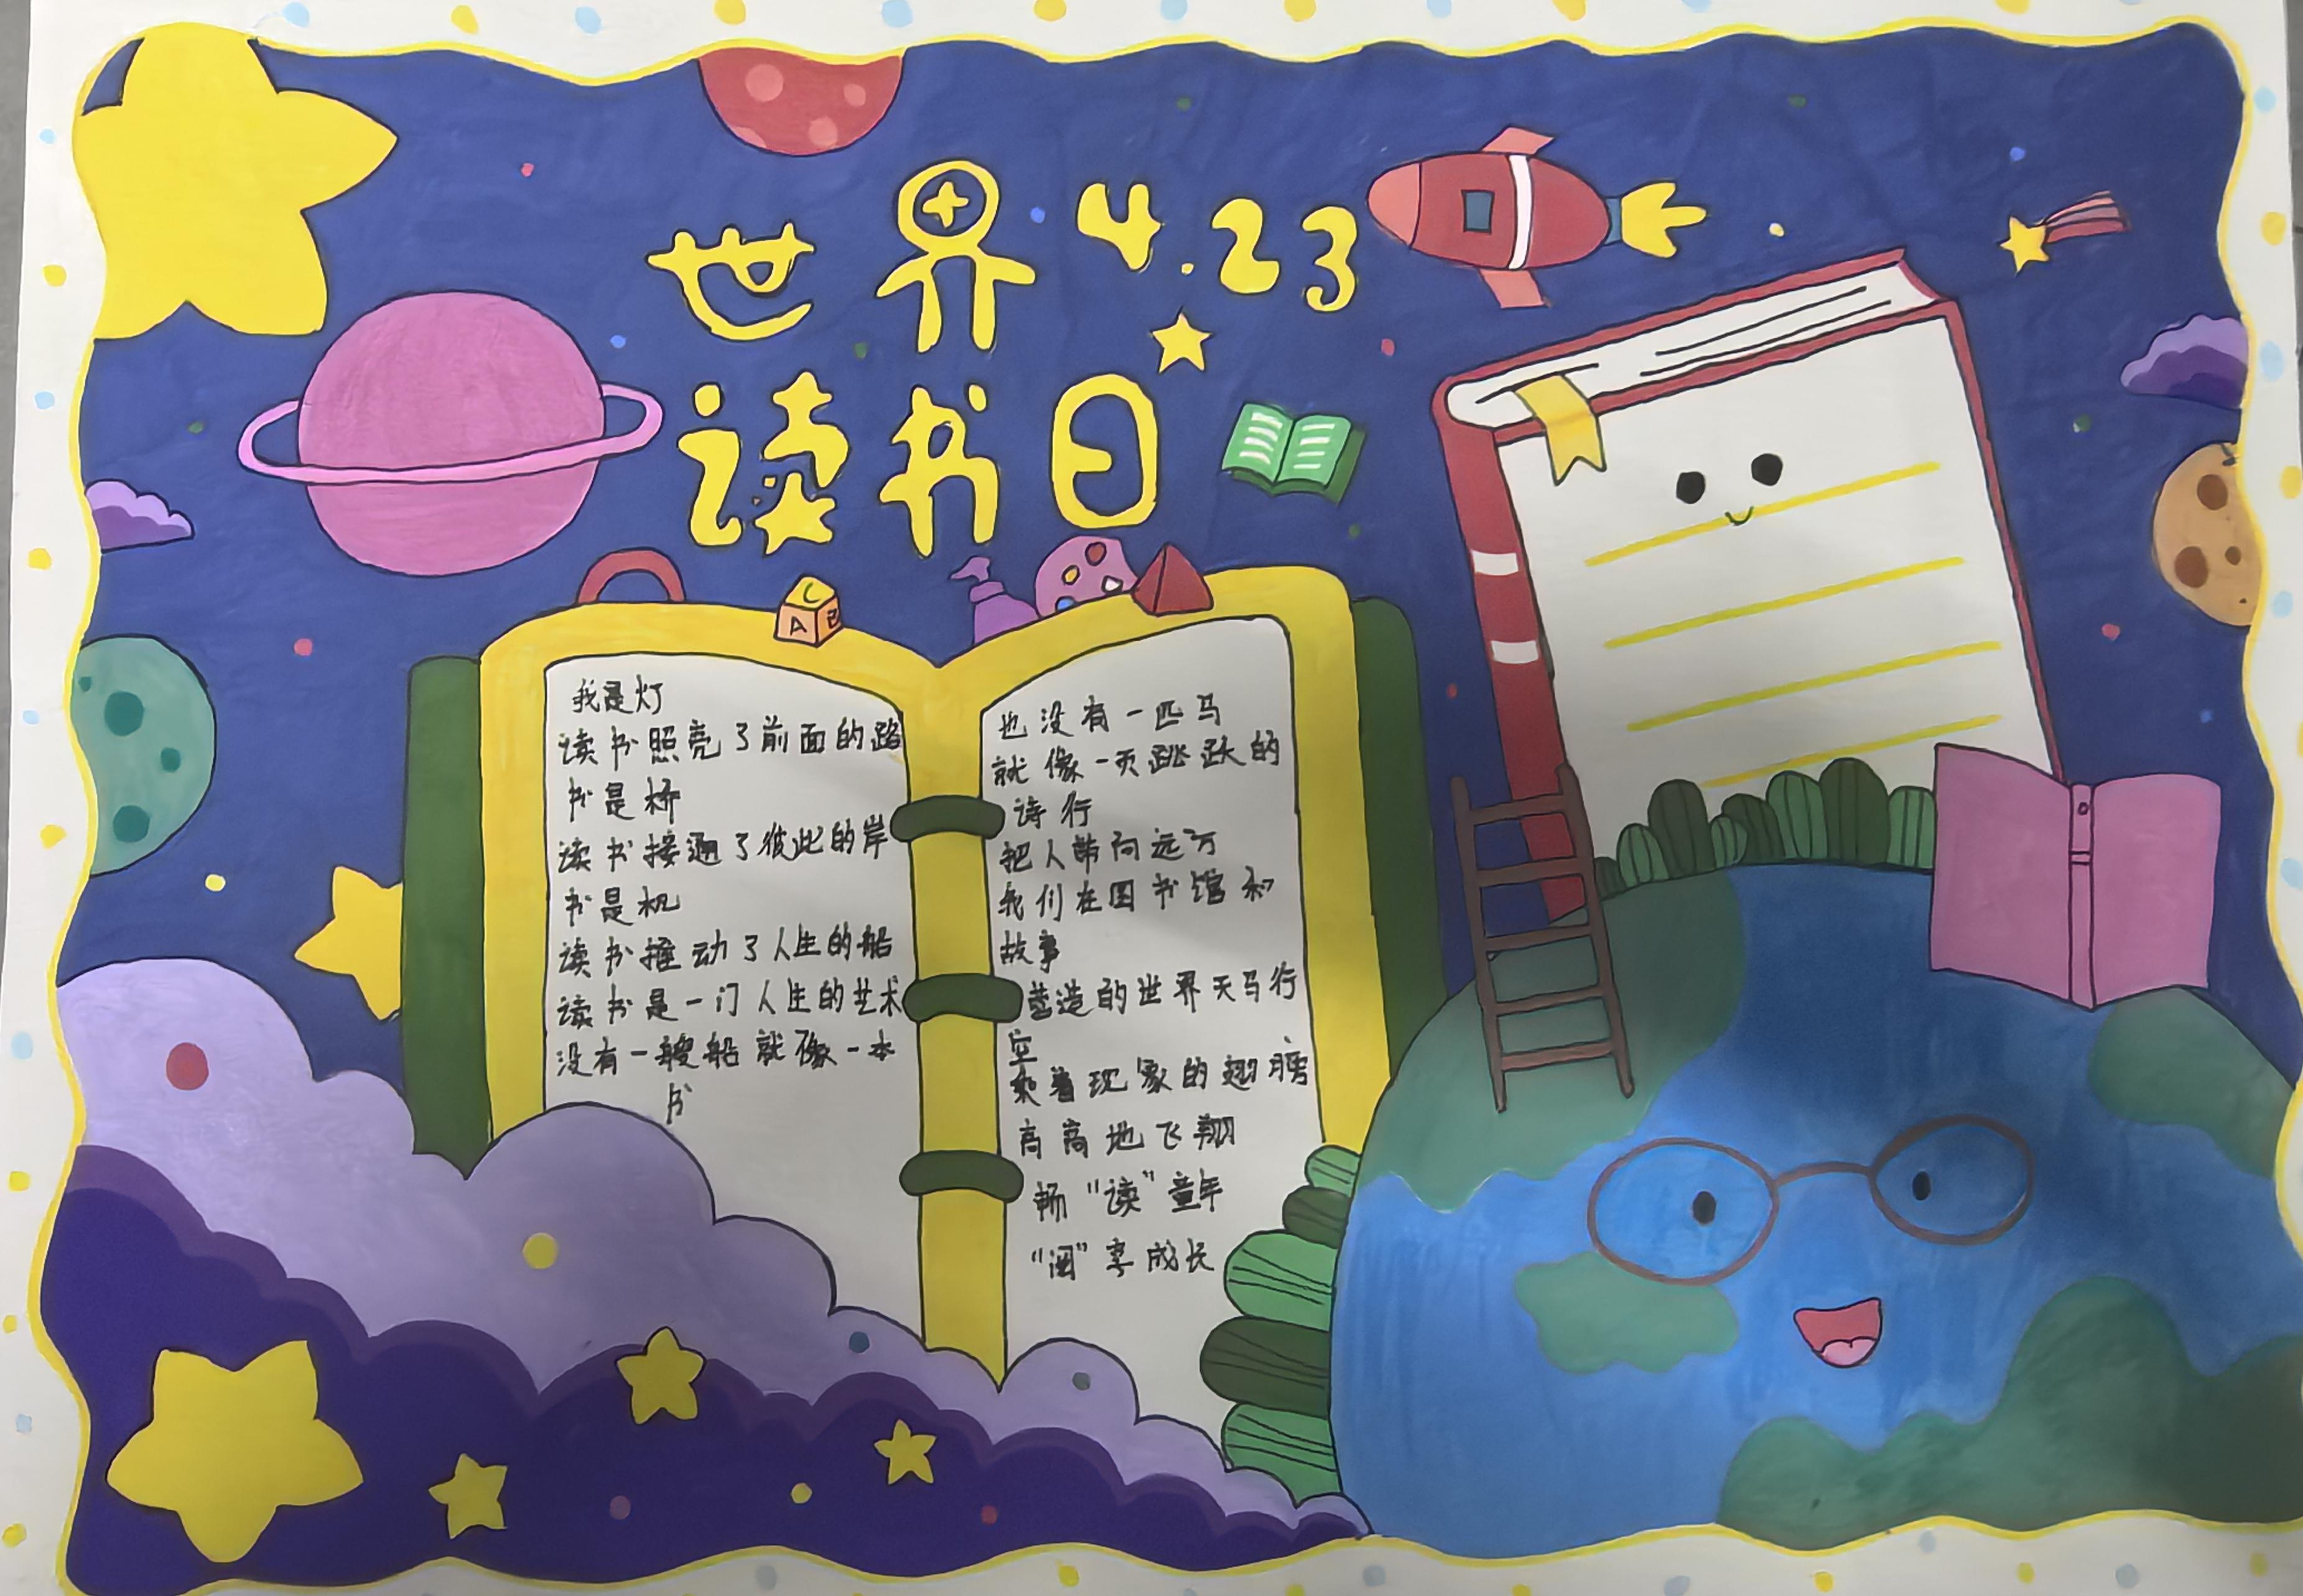 世界 4.23
读书日
C
A B
我是灯
读书照亮了前面的路
书是桥
读书接通了彼此的岸
书是机
读书推动了人生的船
读书是一门人生的艺术
没有一艘船就像一本
书
也没有一匹马
就像一页跳跃的
诗行
把人带向远方
我们在图书馆和
故事
营造的世界天马行
空
乘着现象的翅膀
高高地飞翔
畅“读”童年
“阅”享成长